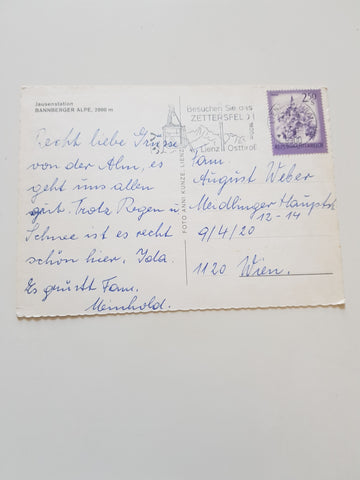 Jausenstation
BANNBERGER ALPE, 2000 m
Recht liebe Grüsse
von der Alm, es
geht uns allen
gut. Trotz Regen u.
Schnee ist es recht
schön hier, Ida.
Es grüsst Fam.
Meinhold.
FOTO ANNI KUNZE, LIENZ
Besuchen Sie das
ZETTERSFELD!
Lienz Osttirol
2.50
REPUBLIK ÖSTERREICH
Fam.
August Weber
Meidlinger Hauptstr
12-14
9/4/20
1120 Wien.